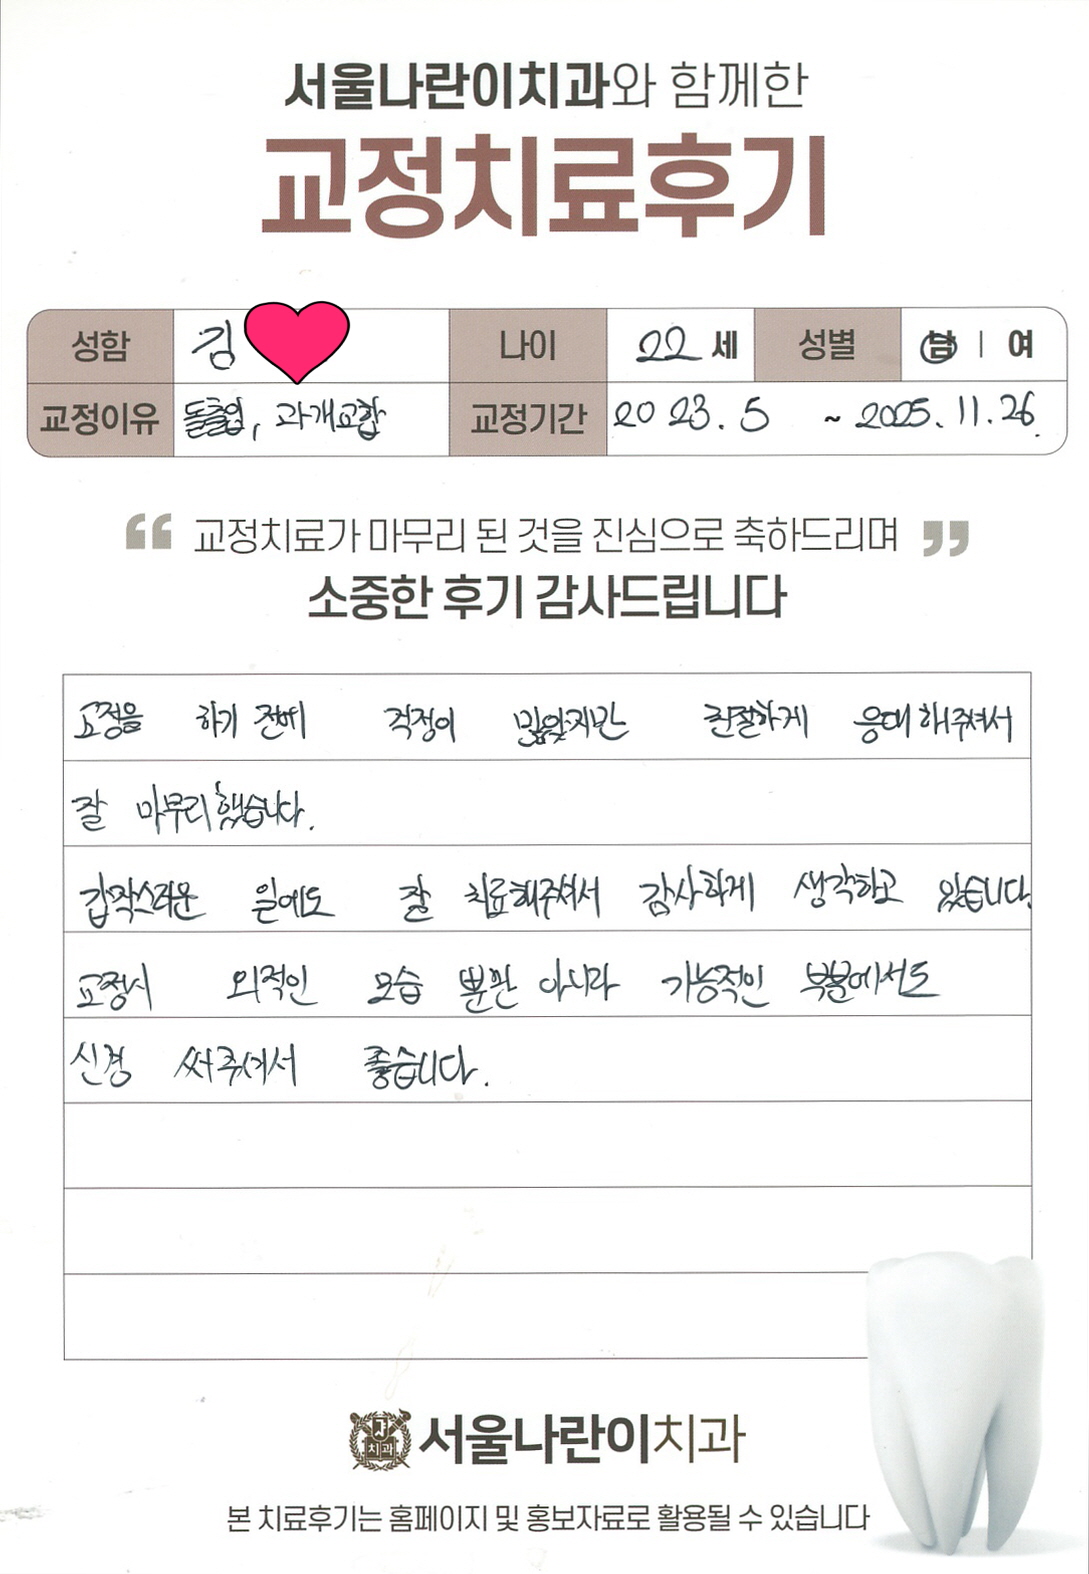 서울나란이치과와 함께한
교정치료후기
성함 김 나이 22 세 성별 남 | 여
교정이유 돌출입, 과개교합 교정기간 2023. 5 ~ 2025. 11. 26.
“ 교정치료가 마무리 된 것을 진심으로 축하드리며 ”
소중한 후기 감사드립니다
교정을 하기 전에 걱정이 많았지만 친절하게 응대해주셔서
잘 마무리했습니다.
갑작스러운 일에도 잘 치료해주셔서 감사하게 생각하고 있습니다.
교정시 외적인 모습 뿐만 아니라 기능적인 부분에서도
신경 써주셔서 좋습니다.
치과
서울나란이치과
본 치료후기는 홈페이지 및 홍보자료로 활용될 수 있습니다